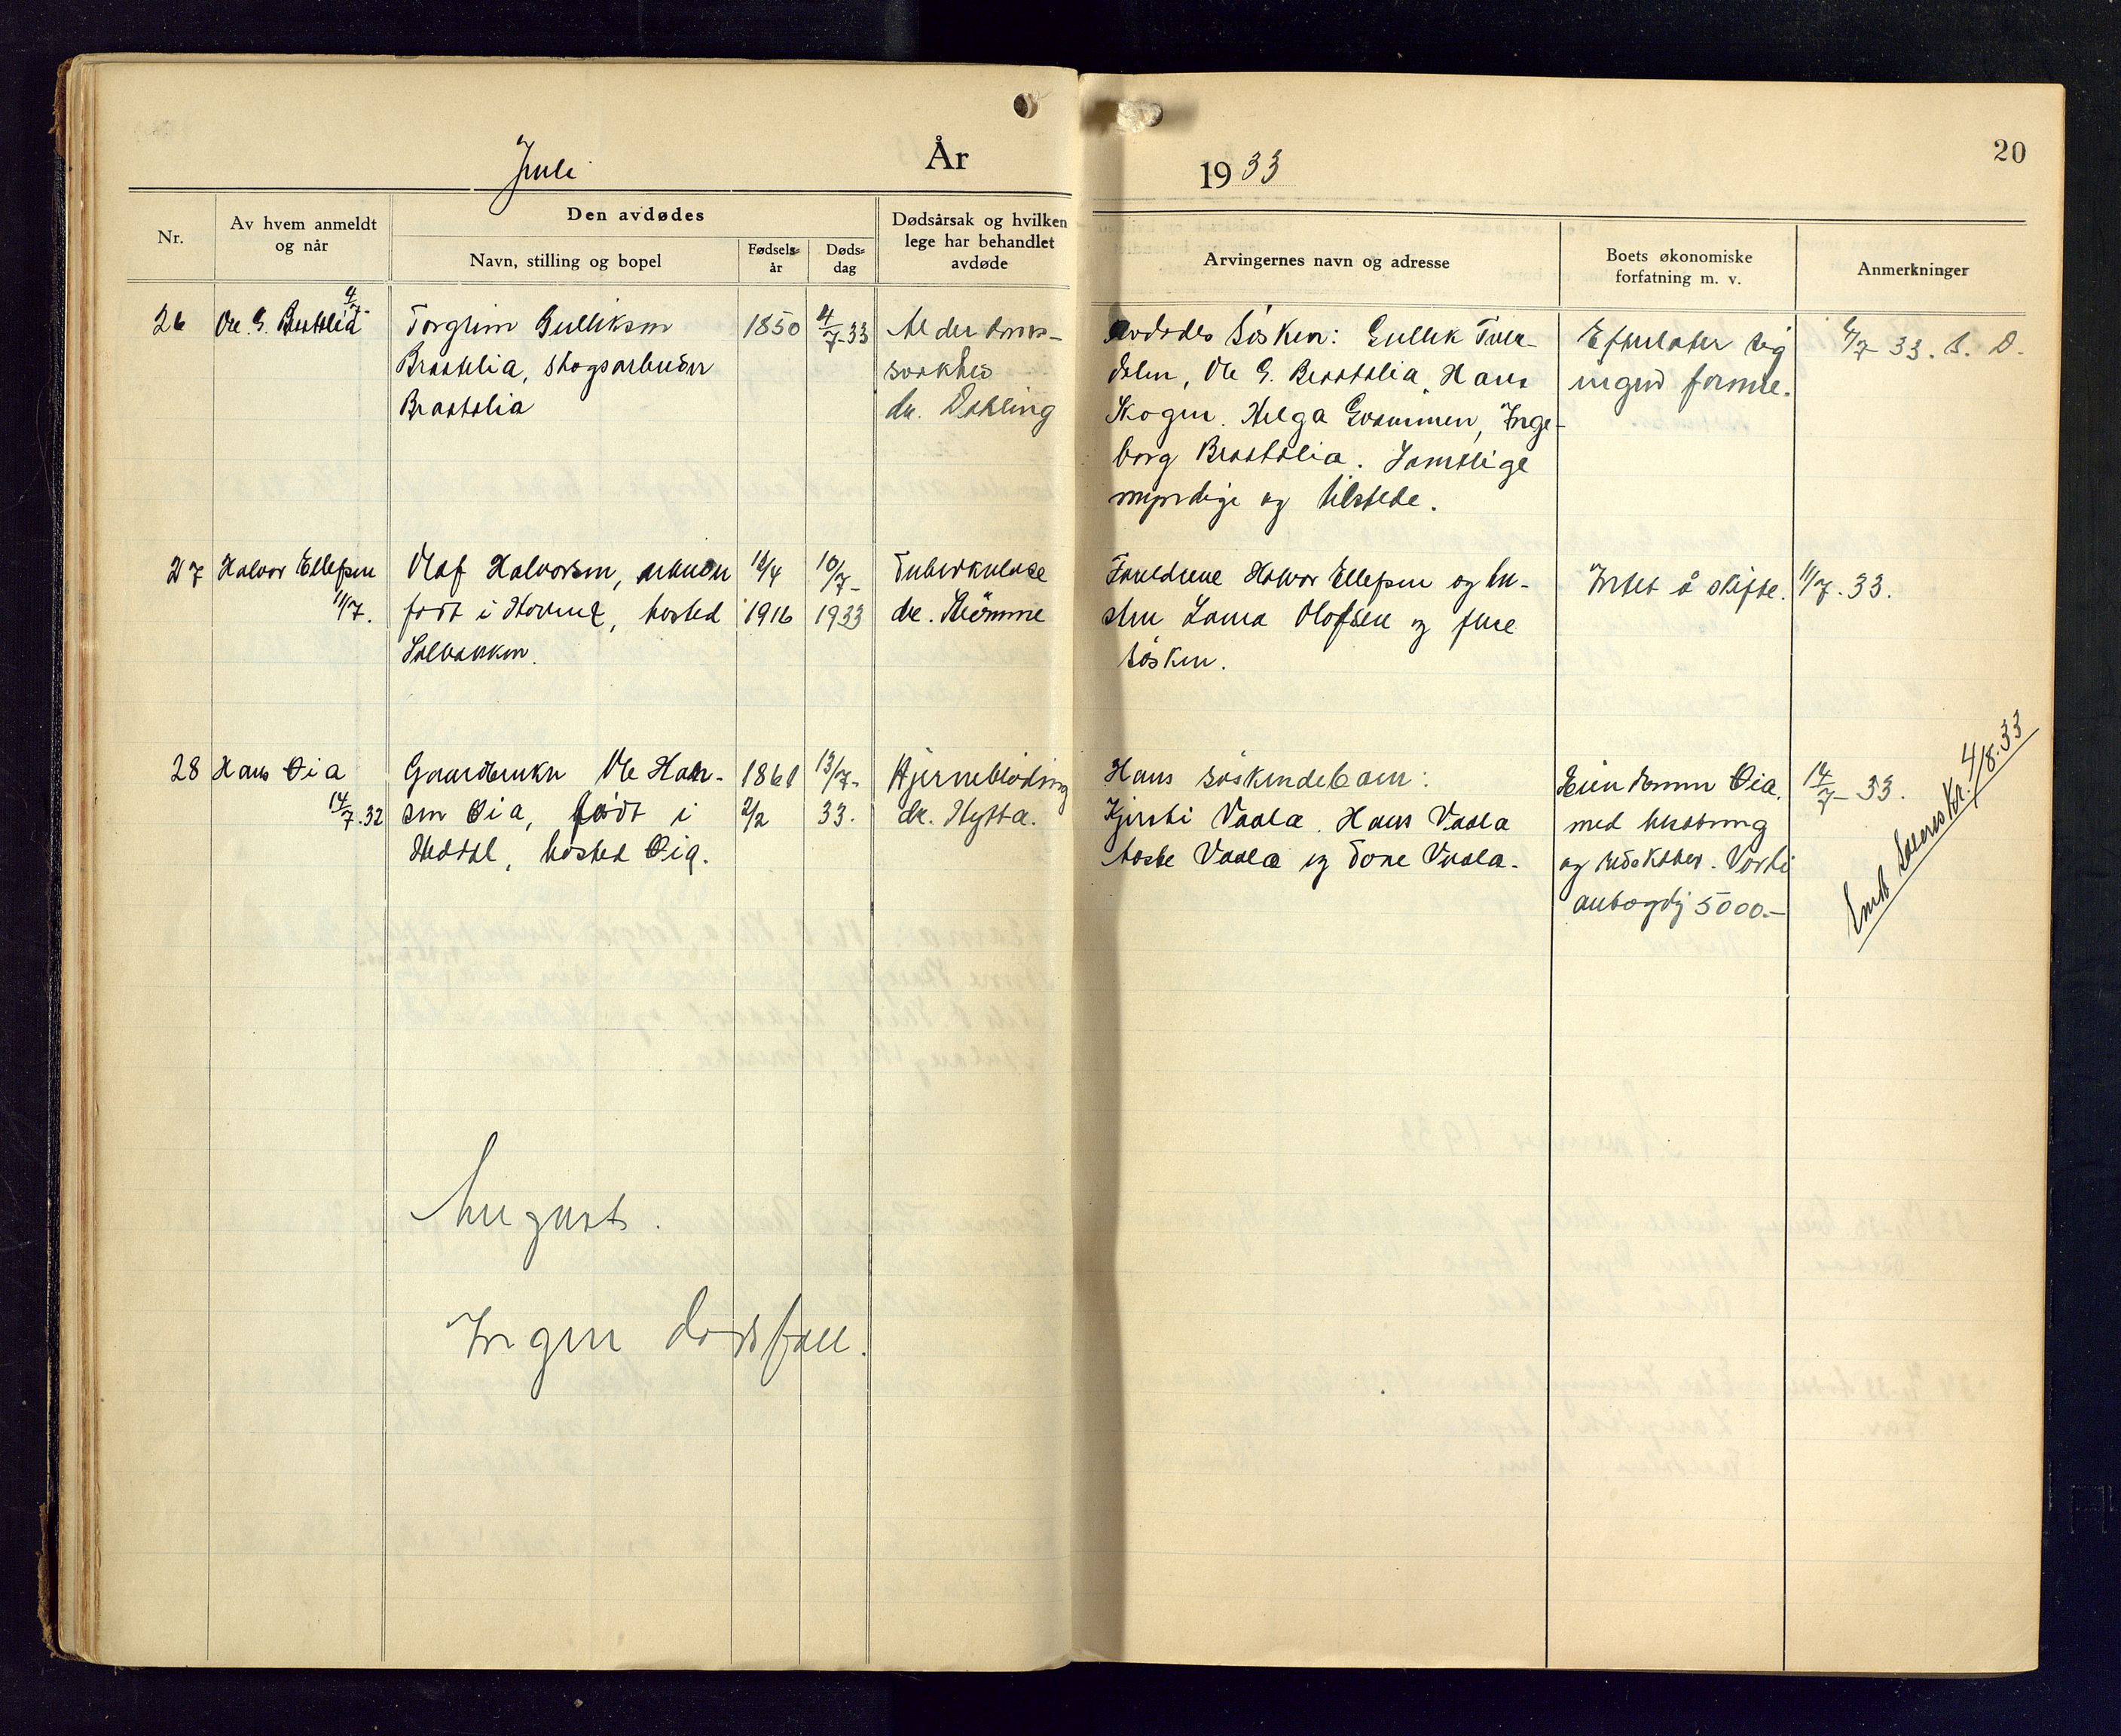 Juli
År
1933
20
Nr.
Av hvem anmeldt og når
Den avdødes
Navn, stilling og bopel
Fødsels= år
Døds= dag
Dødsårsak og hvilken lege har behandlet avdøde
Arvingernes navn og adresse
Boets økonomiske forfatning m. v.
Anmerkninger
26
Ole G. Brattslia 4/7-
Torgrim Gulliksen
Brattslia, skogsarbeider
Brattslia
1850
4/7-33
Alderdoms-
svakhet
dr. Dahling
Avdødes søsken: Gullik
dalen, Ole G. Brattslia, Hans
Skogen. Helga Gvammen, Inge-
borg Brattslia. Samtlige
myndige og tilstede.
Efterlater sig
ingen formue.
4/7-33. S. D.
27
Halvor Ellefsen
11/7.
Olaf Halvorsen, arbeider
født i Hovin, bosted
1916
10/7-
1933
Tuberkulose
dr. Strömme
Foreldrene Halvor Ellefsen og hu-
stru Olafsen og fire
søsken.
Intet å skifte.
11/7.33.
28
Hans Øia
14/7.32
Gaardbruker Ole Han-
sen Øia, født i
Heddal, bosted Øia.
1861
2/2
13/7-
33.
Hjerneblødning
dr. Hytta.
Hans søskendebarn:
Kjersti Vaala. Hans Vaala
Vaala og Tone Vaala.
Eiendommen Øia.
med besetning
og redskaper. Verdi
antagelig 5000.-
14/7-33.
4/8.33
August.
Ingen dødsfall.